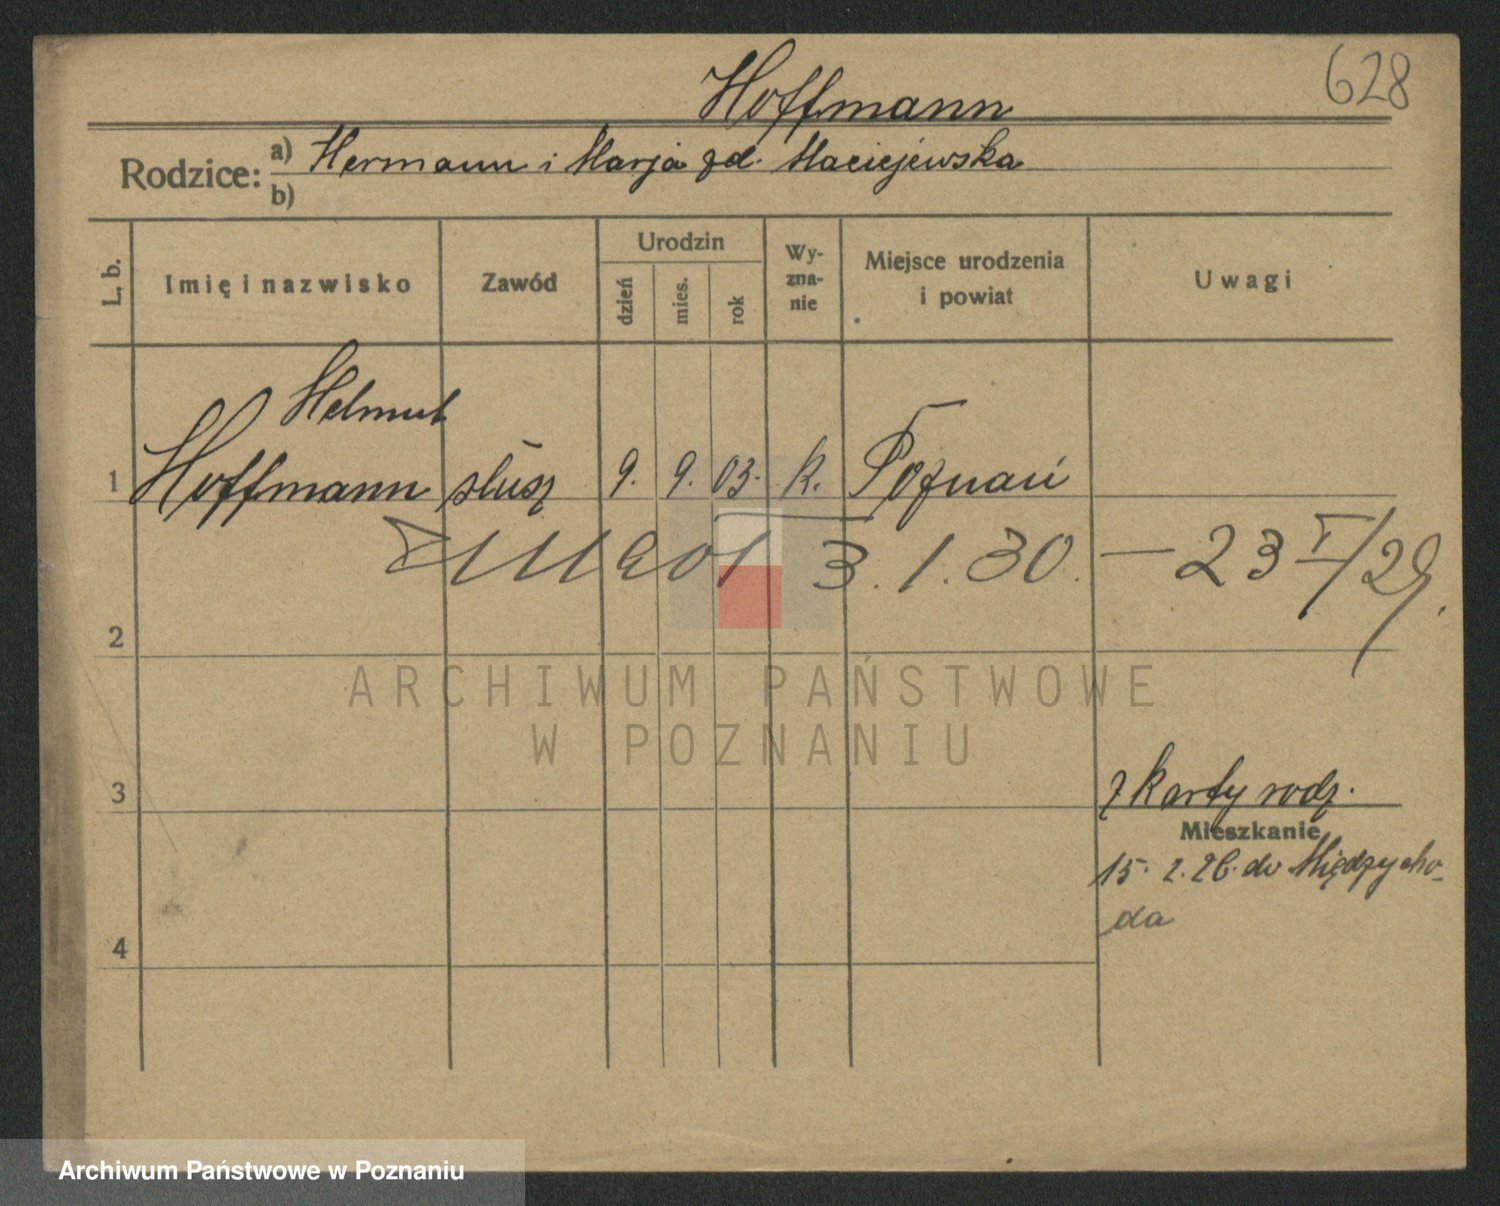 628
Hoffmann
Rodzice: a) Hermann i Marja zd. Maciejewska
b)
L. b. Imię i nazwisko Zawód Urodzin dzień mies. rok Wyznanie Miejsce urodzenia i powiat Uwagi
Helmut
1 Hoffmann ślusz 9. 9. 03. k. Poznań
Zmarł 3. 1. 30. — 23 I/29.
2
ARCHIWUM PAŃSTWOWE
W POZNANIU
z karty rodz.
3
Mieszkanie
15. 2. 26. do Międzycho-
da
4
Archiwum Państwowe w Poznaniu